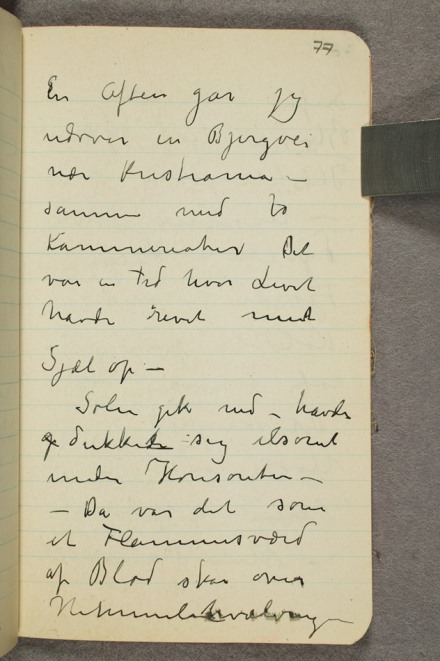 77
En Aften gar jeg
udover en Bjergvei
nær Kristiania –
sammen med to
Kammerater Det
var en Tid hvor Livet
havde revet mit
Sjæl op –
Solen gik ned – havde
dukket sig ilsomt
under Horisonten –
– Da var det som
et Flammesværd
af Blod skar over
Himmelhvælvingen